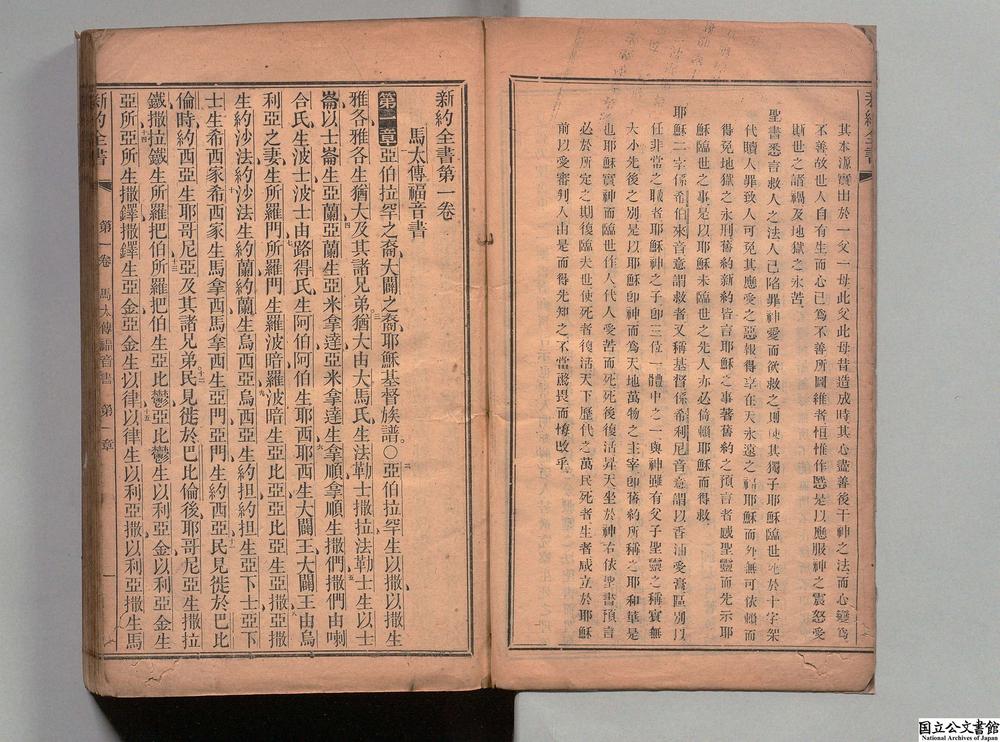 其本源實出於一父一母此父此母昔造成時其心盡善後干神之法而心變爲
不善故世人自有生而心已爲不善所圖維者恒惟作慝是以應服神之震怒愛
斯世之諸禍及地獄之永苦
聖書悉言救人之法人已陷罪神愛而欲救之則使其獨子耶穌臨世死於十字架
代贖人罪致人可免其應受之惡報得享在天永遠之福耶穌而外無可依賴而
得免地獄之永刑舊約新約皆言耶穌之事著舊約之預言者感聖靈而先示耶
穌臨世之事是以耶穌未臨世之先人亦必倚賴耶穌而得救
耶穌二字係希伯來音意謂救者又稱基督係希利尼音意謂以香油受膏區別以
任非常之職者耶穌神之子卽三位一體中之一與神雖有父子聖靈之稱實無
大小先後之別是以耶穌卽神而爲天地萬物之主宰卽舊約所稱之耶和華是
也耶穌實神而臨世作人代人受苦而死死後復活昇天坐於神右依聖書預言
必於所定之期復臨夫世使死者復活天下歷代之萬民死者生者咸立於耶穌
前以受審判人由是而得先知之不當驚畏而悔改乎
新約全書第一卷
馬太傳福音書
第一章亞伯拉罕之裔大闢之裔耶穌基督族譜○二亞伯拉罕生以撒以撒生
雅各雅各生猶大及其諸兄弟三猶大由大馬氏生法勒士撒拉法勒士生以士
崙以士崙生亞蘭四亞蘭生亞米拿達亞米拿達生拿順拿順生撒們五撒們由喇
合氏生波士波士由路得氏生阿伯阿伯生耶西六耶西生大闢王大闢王由烏
利亞之妻生所羅門七所羅門生羅波暗羅波暗生亞比亞亞比亞生亞撒八亞撒
生約沙法約沙法生約蘭約蘭生烏西亞九烏西亞生約担約担生亞下士亞下
士生希西家十希西家生馬拿西馬拿西生亞門亞門生約西亞十一民見徙於巴比
倫時約西亞生耶哥尼亞及其諸兄弟十二民見徙於巴比倫後耶哥尼亞生撒拉
鐵撒拉鐵生所羅把伯十三所羅把伯生亞比鬱亞比鬱生以利亞金以利亞金生
亞所十四亞所生撒鐸撒鐸生亞金亞金生以律十五以律生以利亞撒以利亞撒生馬
新約全書
第一卷 馬太傳福音書 第一章
一
国立公文書館
National Archives of Japan